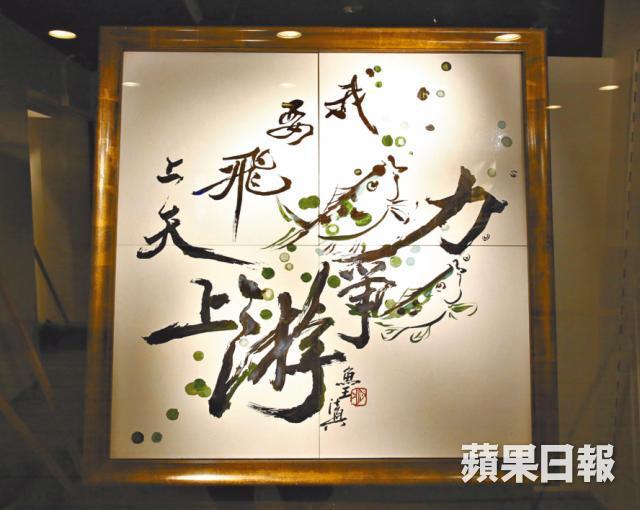 我要飛上天
力爭上游
魚王
蘋果日報